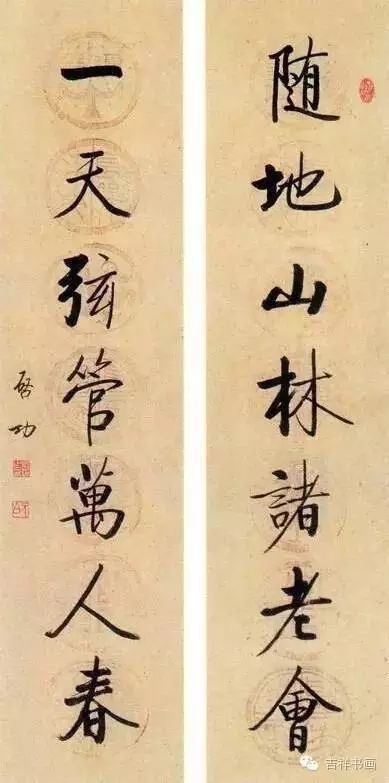 随地山林諸老會
一天弦管萬人春
啓功
吉祥书画